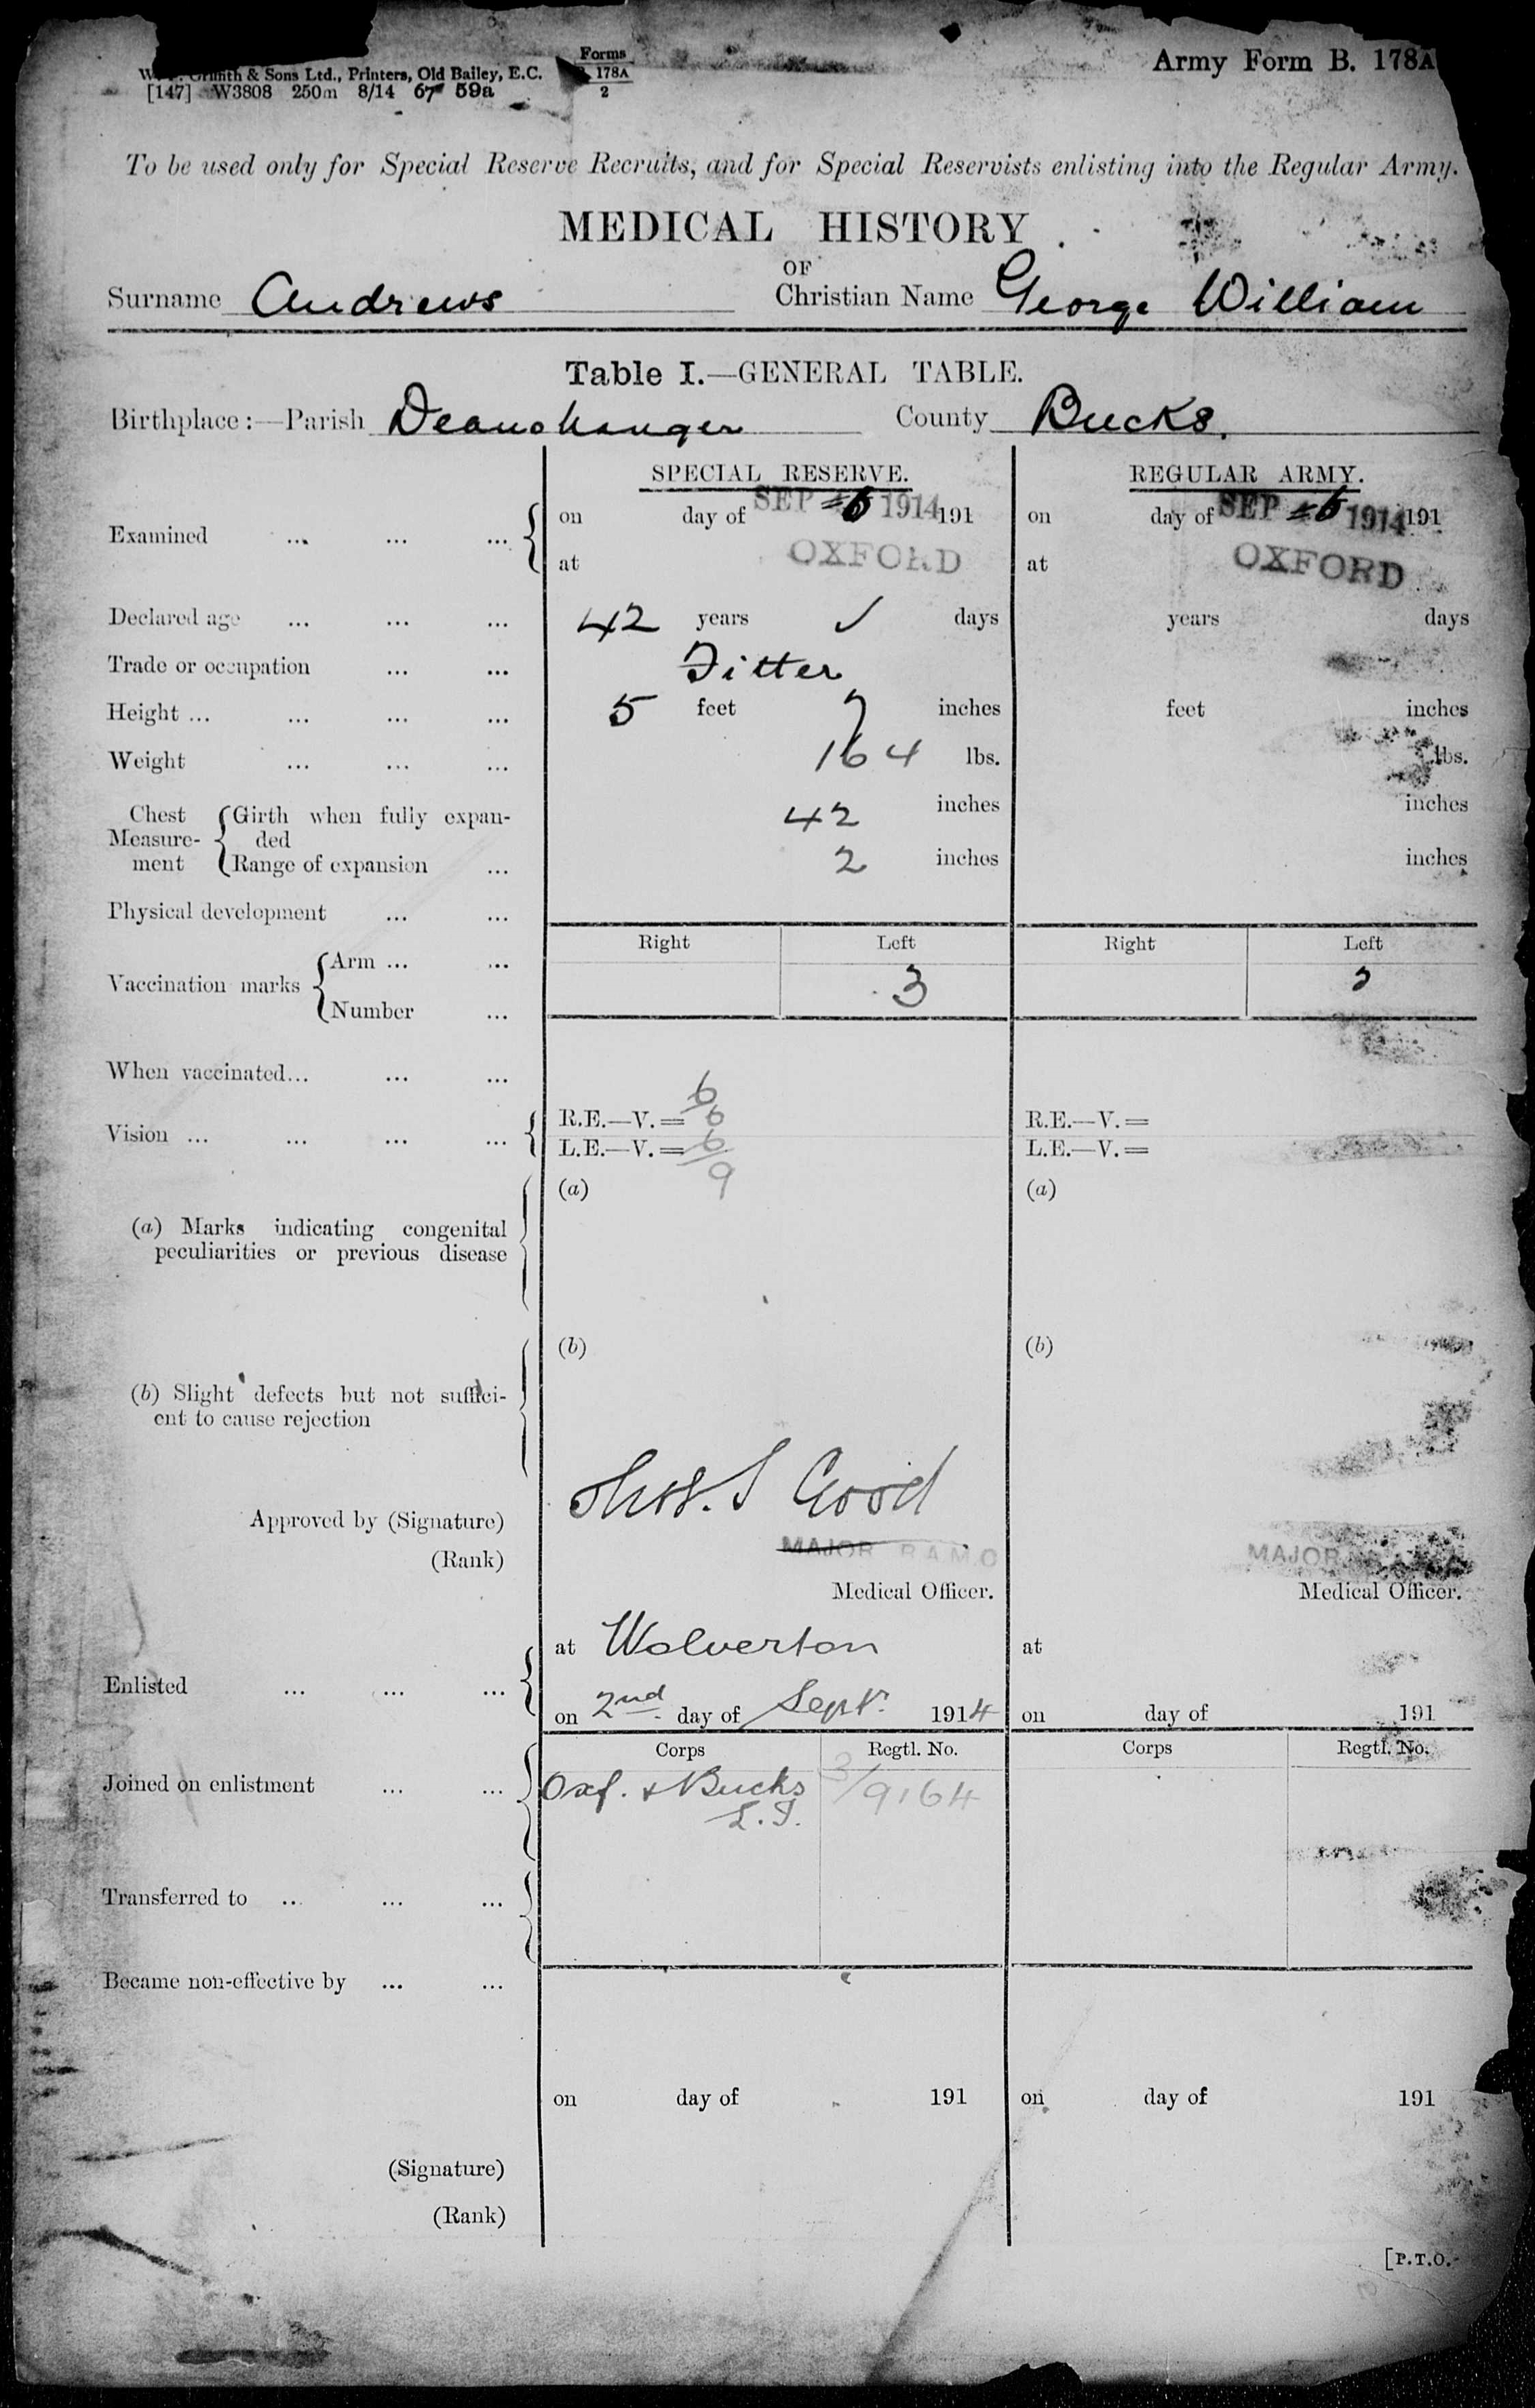 Griffith & Sons Ltd., Printers, Old Bailey, E.C.
[147] W3808 250m 8/14 67 59a
Forms
178A
2
Army Form B. 178A
To be used only for Special Reserve Recruits, and for Special Reservists enlisting into the Regular Army.
MEDICAL HISTORY
OF
Surname Andrews Christian Name George William
Table I.—GENERAL TABLE.
Birthplace:—Parish Deanshanger County Bucks.
SPECIAL RESERVE. REGULAR ARMY.
Examined ... ... ... on day of SEP 6 1914 191 on day of SEP 6 1914 191
at OXFORD at OXFORD
Declared age ... ... ... 42 years ✓ days years days
Trade or occupation ... ... Fitter
Height ... ... ... ... 5 feet 7 inches feet inches
Weight ... ... ... 164 lbs. lbs.
Chest Measurement Girth when fully expanded 42 inches inches
Range of expansion ... 2 inches inches
Physical development ... ...
Right Left Right Left
Vaccination marks Arm ... ... 3
Number ...
When vaccinated... ... ...
Vision ... ... ... ... R.E.—V.= 6/6 R.E.—V.=
L.E.—V.= 6/9 L.E.—V.=
(a) (a)
(a) Marks indicating congenital
peculiarities or previous disease
(b) (b)
(b) Slight defects but not suffici-
ent to cause rejection
Approved by (Signature) Good
(Rank) MAJOR R.A.M.C MAJOR
Medical Officer. Medical Officer.
Enlisted ... ... ... at Wolverton at
on 2nd day of Sept. 1914 on day of 191
Corps Regtl. No. Corps Regtl. No.
Joined on enlistment ... ... Oxf. & Bucks 3/9164
L.I.
Transferred to ... ... ...
Became non-effective by ... ...
on day of 191 on day of 191
(Signature)
(Rank)
[P.T.O.